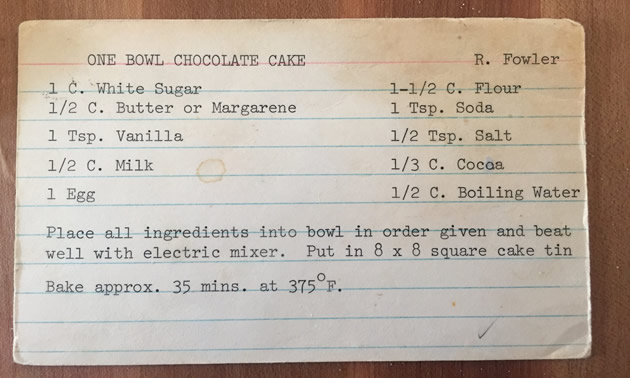 ONE BOWL CHOCOLATE CAKE R. Fowler
1 C. White Sugar 1-1/2 C. Flour
1/2 C. Butter or Margarene 1 Tsp. Soda
1 Tsp. Vanilla 1/2 Tsp. Salt
1/2 C. Milk 1/3 C. Cocoa
1 Egg 1/2 C. Boiling Water
Place all ingredients into bowl in order given and beat
well with electric mixer. Put in 8 x 8 square cake tin
Bake approx. 35 mins. at 375°F.